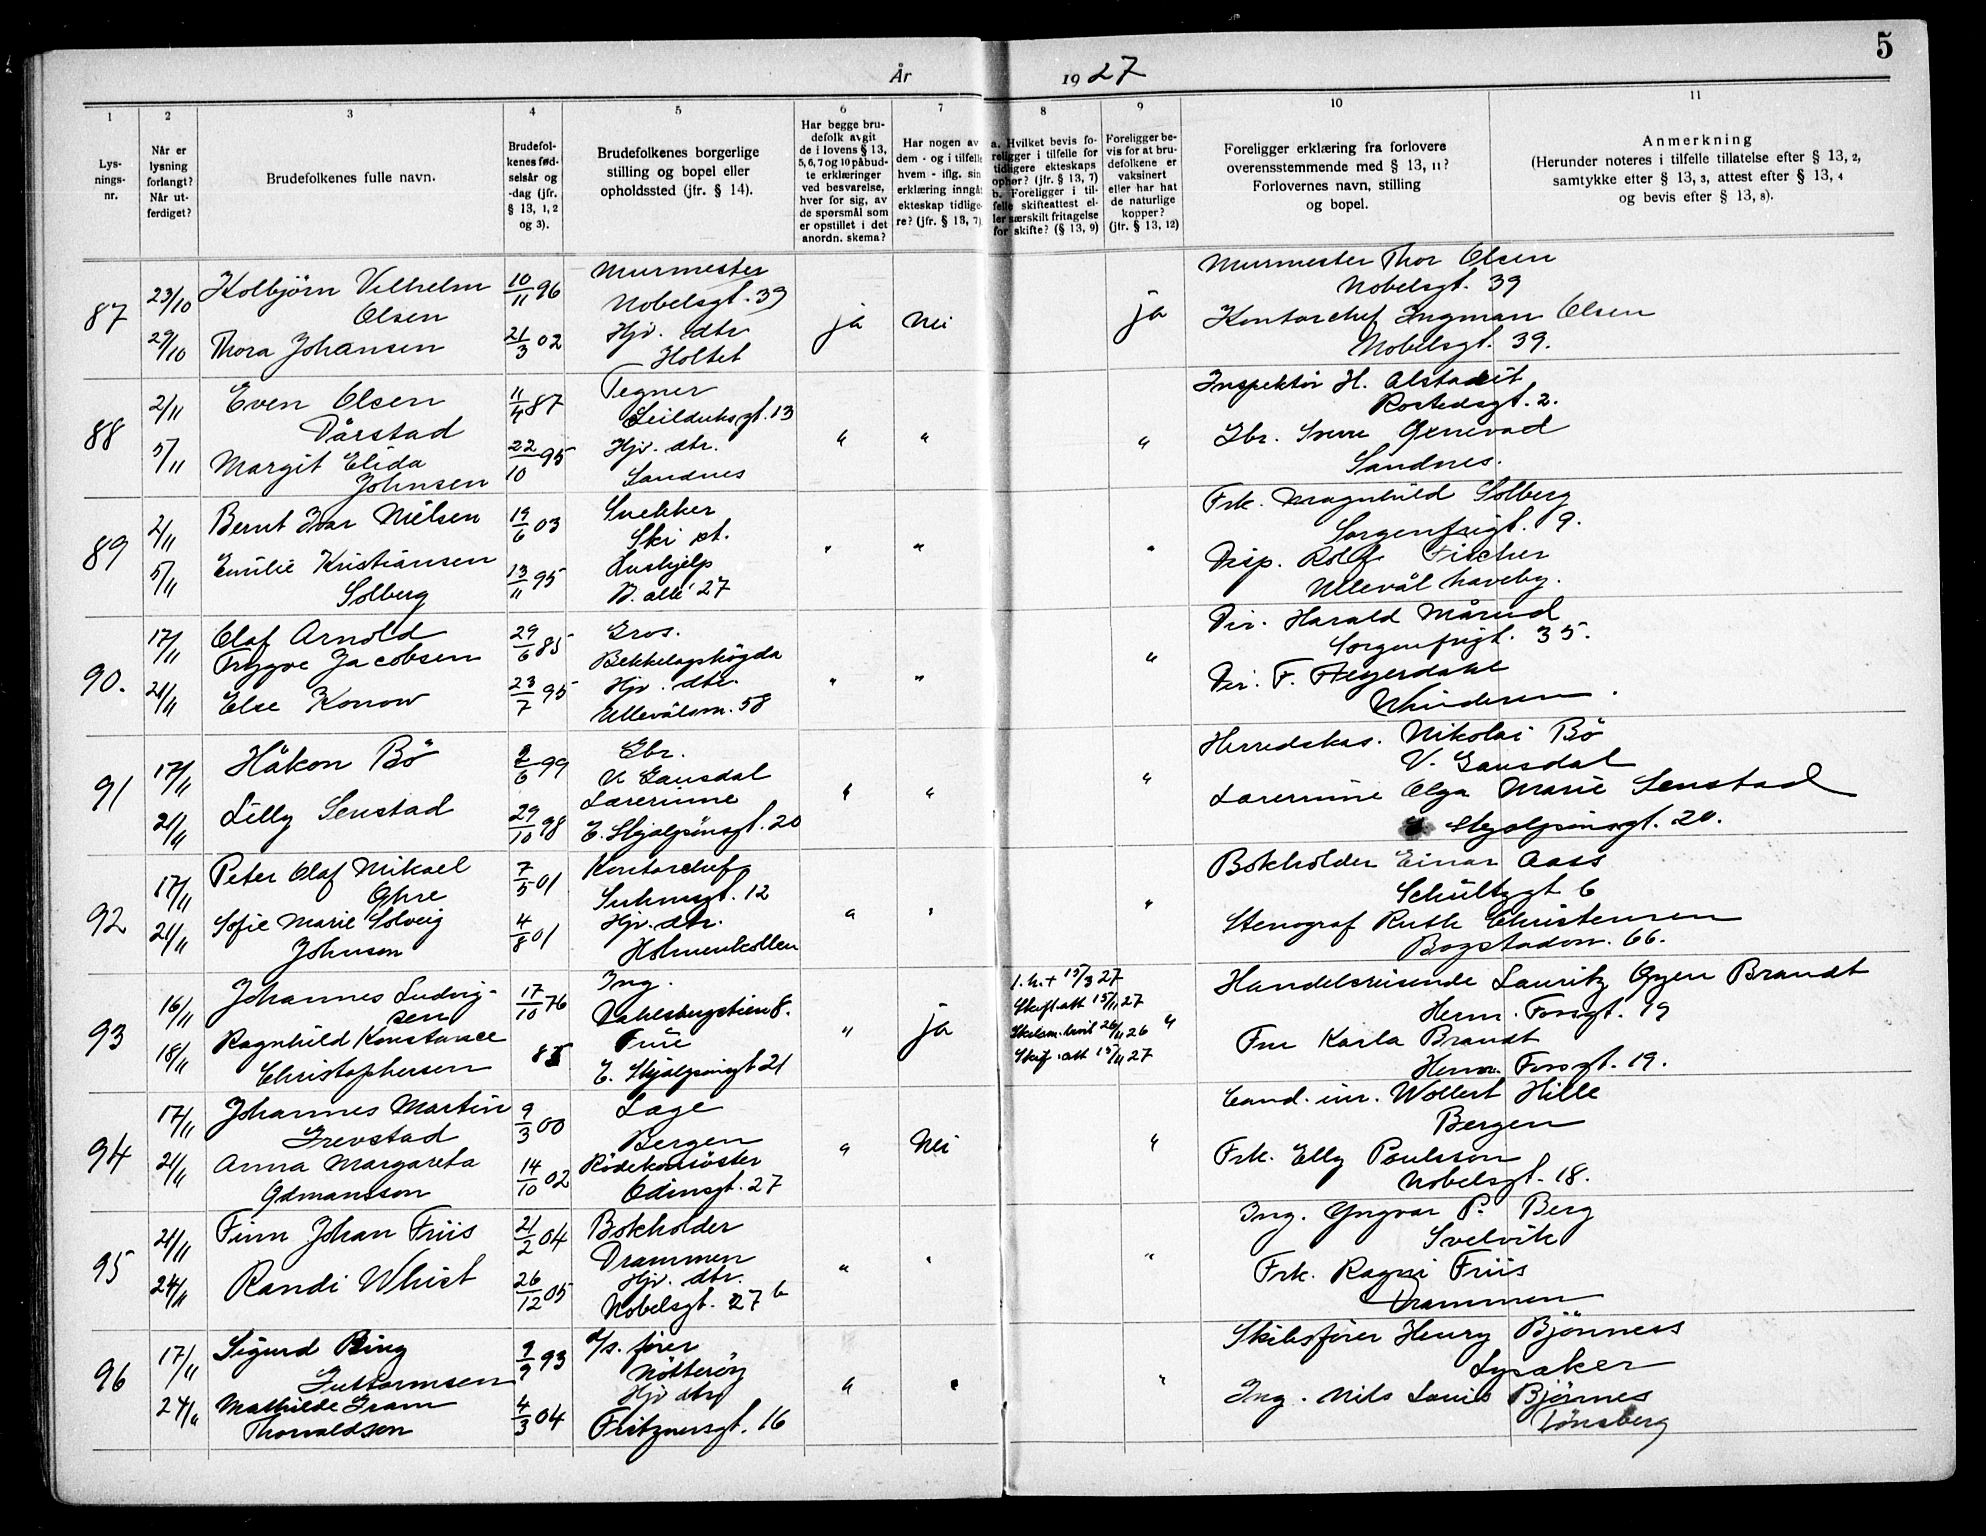 5
År 1927
1 2 3 4 5 6 7 8 9 10 11
Lys-
nings-
nr.
Når er
lysning
forlangt?
Når ut-
ferdiget?
Brudefolkenes fulle navn.
Brudefol-
kenes fød-
selsår og
-dag (jfr.
§ 13, 1, 2
og 3).
Brudefolkenes borgerlige
stilling og bopel eller
opholdssted (jfr. § 14).
Har begge bru-
defolk avgit
de i lovens § 13,
5, 6, 7 og 10 påbud-
te erklæringer
ved besvarelse,
hver for sig, av
de spørsmål som
er opstillet i det
anordn. skema?
Har nogen av
dem - og i tilfelle
hvem - iflg. sin
erklæring inngåt
ekteskap tidlige-
re? (jfr. § 13, 7)
a. Hvilket bevis fo-
religger i tilfelle for
tidligere ekteskaps
ophør? (jfr. § 13, 7)
b. Foreligger i til-
felle skifteattest el-
ler særskilt fritagelse
for skifte? (§ 13, 9)
Foreligger be-
vis for at bru-
defolkene er
vaksinert
eller har hat
de naturlige
kopper?
(jfr. § 13, 12)
Foreligger erklæring fra forlovere
overensstemmende med § 13, 11?
Forlovernes navn, stilling
og bopel.
Anmerkning
(Herunder noteres i tilfelle tillatelse efter § 13, 2,
samtykke efter § 13, 3, attest efter § 13, 4
og bevis efter § 13, 8).
87
23/10 Kolbjörn Vilhelm 10/11 96 Murmester
Olsen Nobelsgt. 39
29/10 Thora Johansen 21/3 02 Hjv. dtr
Holtet
ja Nei ja
Murmester Thor Olsen
Nobelsgt. 39
Kontorchef Ingman Olsen
Nobelsgt. 39.
88
2/11 Even Olsen 11/4 87 Tegner
Dårstad Seilduksgt. 13
5/11 Margit Elida 22/10 95 Hjv. dtr.
Johnsen Sandnes
" " "
Inspektör H.
Rostedsgt. 2.
Gbr.
Sandnes.
89
2/11 Bernt Ivar Nielsen 19/6 03 Snekker
Ski st.
5/11 Emilie Kristiansen 13/11 95 Hushjelp
Solberg B. allé 27
" " "
Frk. Magnhild Solberg
Sorgenfrigt. 9.
Disp. Rolf Fischer
Ullevål haveby.
90.
17/11 Olaf Arnold 29/6 85 Gros.
Trygve Jacobsen Bekkelagshögda
21/11 Else Konow 23/7 95 Hjv. dtr.
Ullevålsvn. 58
" " "
Dir. Harald Mårud
Sorgenfrigt. 35.
Dir. F. Heyerdahl
Vinderen.
91
17/11 Håkon Bö 2/6 99 Gbr.
V. Gausdal
21/11 Lilly Senstad 29/10 98 Lærerinne
E. Skjalpönsgt. 20
" " "
Herredskas. Nikolai Bö
V. Gausdal
Lærerinne Olga Marie Senstad
E. Skjalpönsgt. 20.
92
17/11 Peter Olaf Mikael 7/5 01 Kontorchef
Suhmsgt. 12
21/11 Sofie Marie Solveig 4/8 01 Hjv. dtr.
Johnson Holmenkollen
" " "
Bokholder Einar Aass
Schultzgt 6
Stenograf Ruth Christensen
Bogstadvn. 66.
93
16/11 Johannes Ludvig- 17/10 76 Ing.
sen Dahlsbergstien 8.
18/11 Ragnhild Konstance 85 Frue
Christophersen E. Skjalpönsgt 21
" ja
1. h. + 15/3 27
Skift. att 15/11 27
Skilsm. bevil 26/11 26 "
Skif. att 15/11 27
Handelsreisende Lauritz Oyen Brandt
Herm. Fossgt. 19
Fru Karla Brandt
Herm. Fossgt. 19.
94
17/11 Johannes Martin 9/3 00 Læge
Grevstad Bergen
21/11 Anna Margareta 14/10 02 Rödekorssöster
Odmansson Odinsgt. 27
" Nei "
Cand. jur. Wollert Hille
Bergen
Frk. Elly Poulsson
Nobelsgt. 18.
95
21/11 Finn Johan Friis 21/2 04 Bokholder
Drammen
24/11 Randi Whist 26/12 05 Hjv. dtr.
Nobelsgt. 27 b
" " "
Ing. Yngvar P. Berg
Svelvik
Frk. Ragni Friis
Drammen
96
17/11 Sigurd Ring 9/9 93 S/s. förer
Guttormsen Nötteröy
24/11 Mathilde Fram 4/3 04 Hjv dtr
Thorvaldsen Fritznersgt. 16
" " "
Skibsförer Henry Bjönness
Lysaker
Ing. Nils Louis Bjönnes
Tönsberg